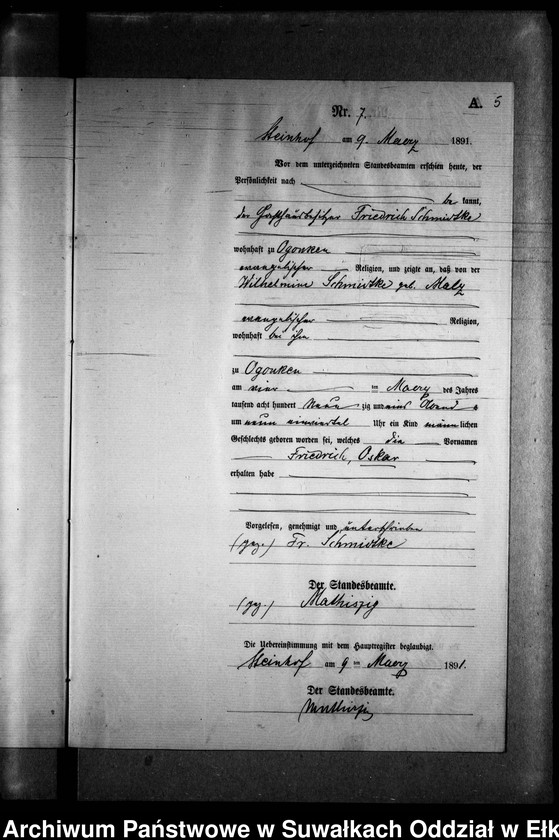 A. 5
Nr. 7.
Steinhof am 9. Maerz 1891.
Vor dem unterzeichneten Standesbeamten erschien heute, der
Persönlichkeit nach
be kannt,
der Friedrich Schmidtke
wohnhaft zu Ogonken
evangelischer Religion, und zeigte an, daß von der
Wilhelmine Schmidtke geb. Malz
evangelischer Religion,
wohnhaft bei ihm
zu Ogonken
am vier ten Maerz des Jahres
tausend acht hundert Neun zig und eins Abends
um neun einviertel Uhr ein Kind männlichen
Geschlechts geboren worden sei, welches die Vornamen
Friedrich, Oskar
erhalten habe
Vorgelesen, genehmigt und unterschrieben
(gez.) Fr. Schmidtke
Der Standesbeamte.
(gez.) Mathiszig
Die Uebereinstimmung mit dem Hauptregister beglaubigt.
Steinhof am 9 ten Maerz 1891.
Der Standesbeamte.
Mathiszig
Archiwum Państwowe w Suwałkach Oddział w Ełk